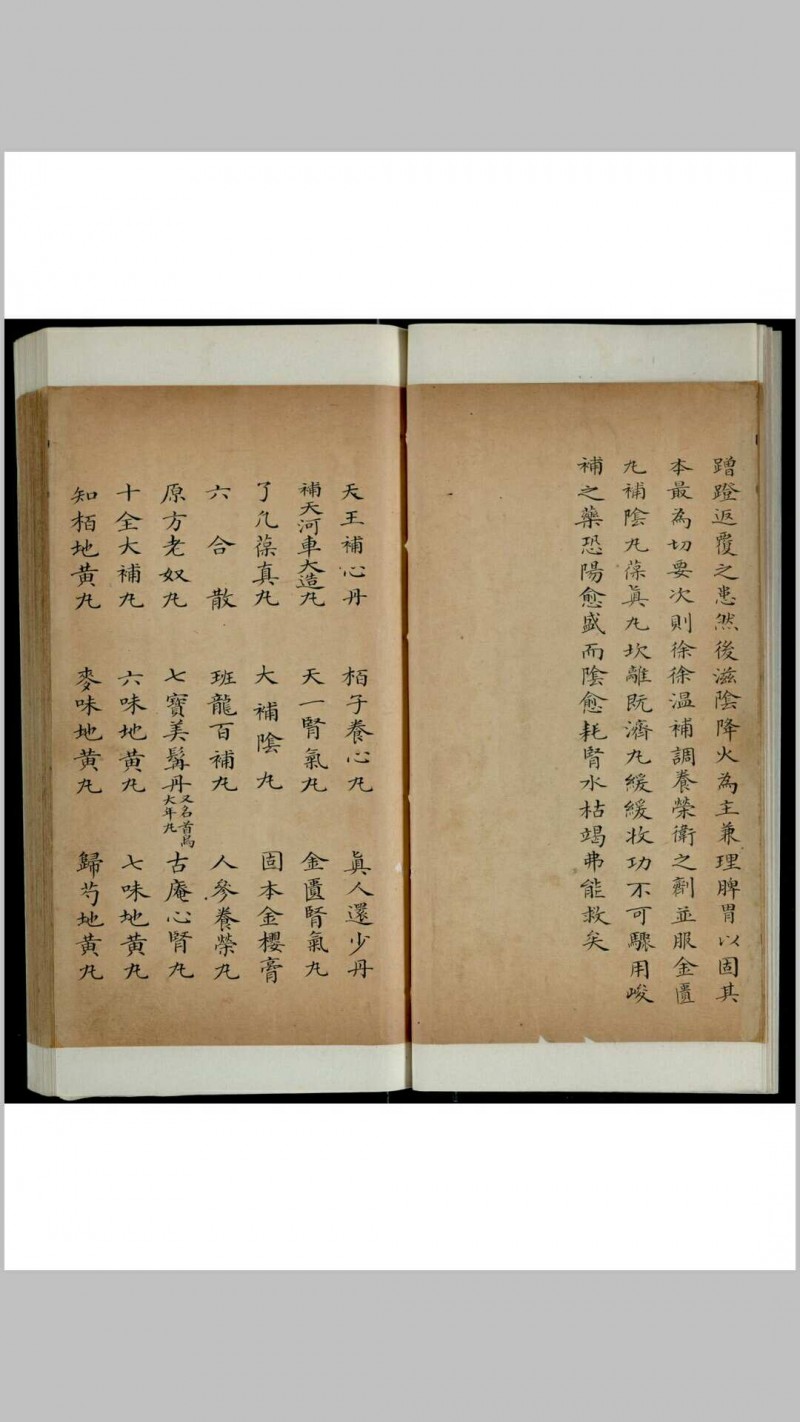 蹭蹬返覆之患然後滋陰降火為主兼理脾胃以固其
本最為切要次則徐徐温補調養榮衛之劑並服金匱
丸補陰丸葆眞丸坎離旣濟丸緩緩收功不可驟用峻
補之藥恐陽愈盛而陰愈耗腎水枯竭弗能救矣
天王補心丹 栢子養心丸 眞人還少丹
補天河車大造丸 天一腎氣丸 金匱腎氣丸
了凡葆真丸 大補陰丸 固本金櫻膏
六合散 班龍百補丸 人參養榮丸
原方老奴丸 七寶美髯丹又名首烏大年丸 古庵心腎丸
十全大補丸 六味地黃丸 七味地黃丸
知栢地黃丸 麥味地黃丸 歸芍地黃丸